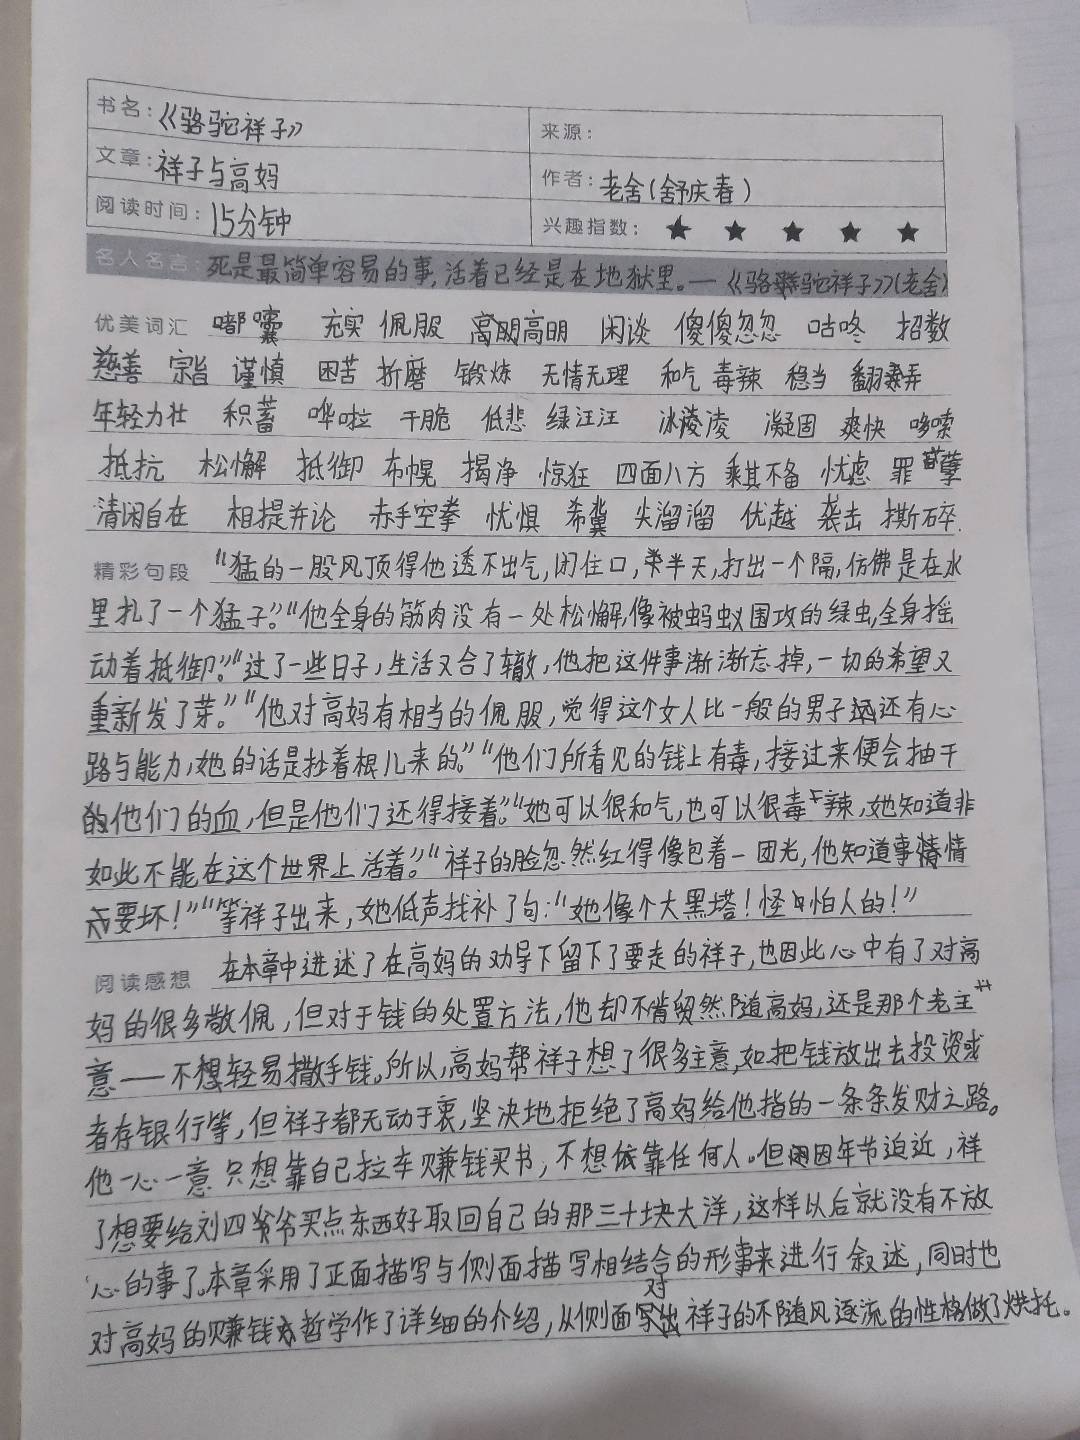 书名：《骆驼祥子》
来源：
文章：祥子与高妈
作者：老舍（舒庆春）
阅读时间：15分钟
兴趣指数：★ ★ ★ ★ ★
名人名言 死是最简单容易的事，活着已经是在地狱里。——《骆驼祥子》（老舍）
优美词汇 嘟囔 充实 佩服 高明 闲谈 傻傻忽忽 咕咚 招数
慈善 宗旨 谨慎 困苦 折磨 锻炼 无情无理 和气 毒辣 稳当 翻弄
年轻力壮 积蓄 哗啦 干脆 低悲 绿汪汪 冰凌 凝固 爽快 哆嗦
抵抗 松懈 抵御 布幌 揭净 惊狂 四面八方 乘其不备 忧虑 罪孽
清闲自在 相提并论 赤手空拳 忧惧 希冀 尖溜溜 优越 袭击 撕碎.
精彩句段 “猛的一股风顶得他透不出气，闭住口，半天，打出一个隔，仿佛是在水
里扎了一个猛子。”“他全身的筋肉没有一处松懈，像被蚂蚁围攻的绿虫，全身摇
动着抵御。”“过了一些日子，生活又合了辙，他把这件事渐渐忘掉，一切的希望又
重新发了芽。”“他对高妈有相当的佩服，觉得这个女人比一般的男子还有心
路与能力，她的话是抄着根儿来的。”“他们所看见的钱上有毒，接过来便会抽干
他们的血，但是他们还得接着。”“她可以很和气，也可以很毒辣，她知道非
如此不能在这个世界上活着。”“祥子的脸忽然红得像包着一团光，他知道事情
要坏！”“等祥子出来，她低声找补了句：“她像个大黑塔！怪怕人的！”
阅读感想 在本章中进述了在高妈的劝导下留下了要走的祥子，也因此心中有了对高
妈的很多敬佩，但对于钱的处置方法，他却不肯贸然随高妈，还是那个老主
意——不想轻易撒手钱。所以，高妈帮祥子想了很多主意，如把钱放出去投资或
者存银行等，但祥子都无动于衷，坚决地拒绝了高妈给他指的一条条发财之路。
他一心一意只想靠自己拉车赚钱买书，不想依靠任何人。但因年节迫近，祥
了想要给刘四爷爷买点东西好取回自己的那三十块大洋，这样以后就没有不放
心的事了。本章采用了正面描写与侧面描写相结合的形事来进行叙述，同时也
对高妈的赚钱哲学作了详细的介绍，从侧面对祥子的不随风逐流的性格做了烘托。